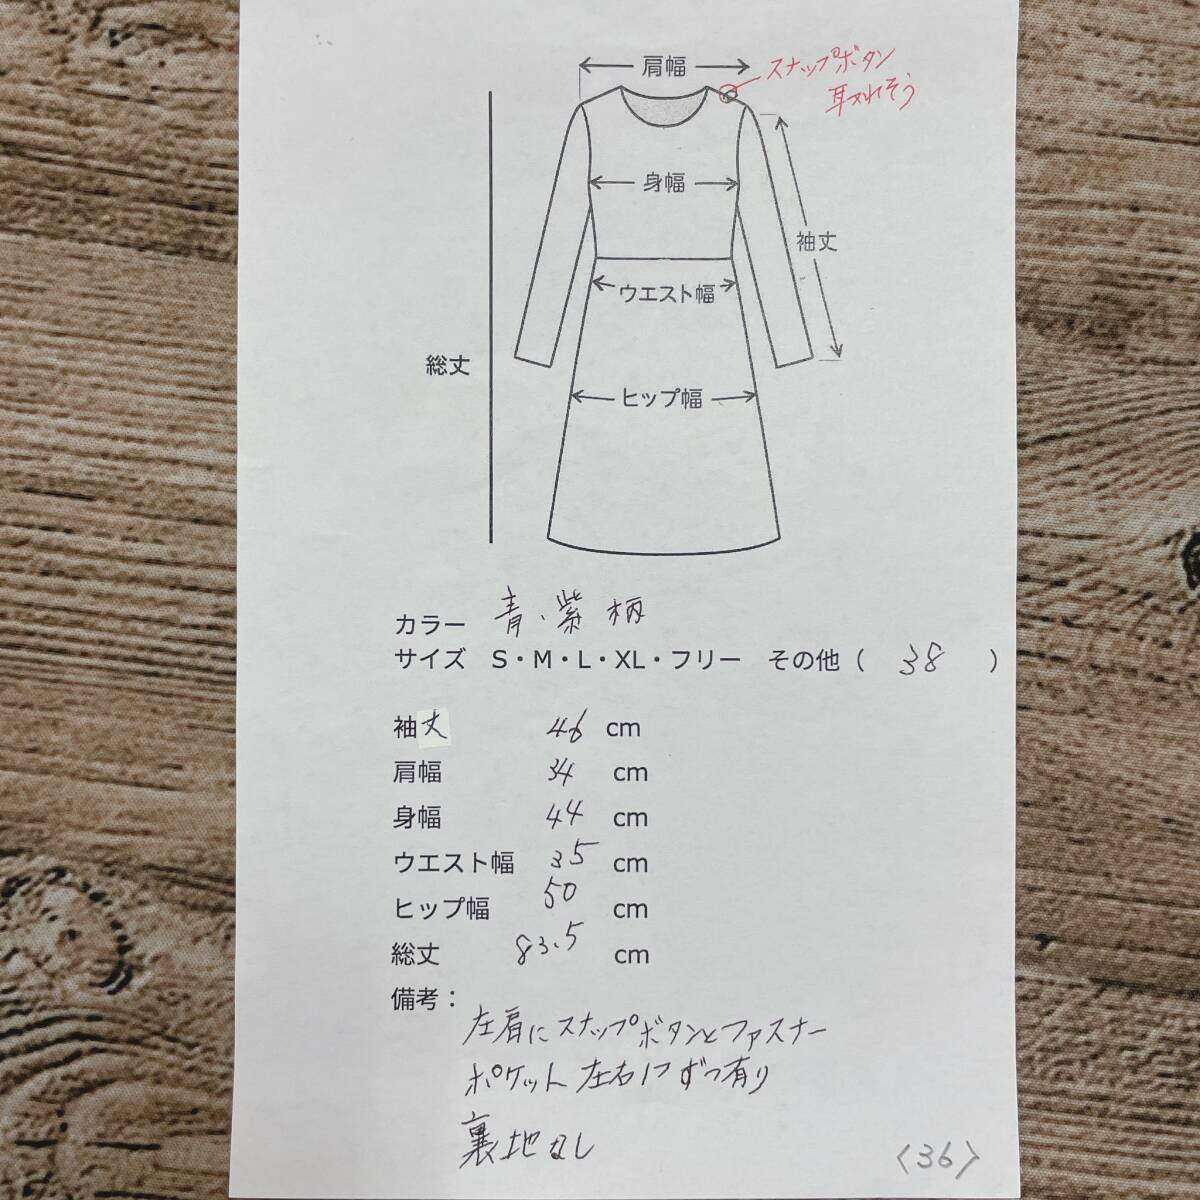 肩幅
スナップボタン
取れそう
身幅
袖丈
ウエスト幅
総丈
ヒップ幅
カラー 青・紫柄
サイズ S・M・L・XL・フリー その他（ 38 ）
袖丈 46 cm
肩幅 34 cm
身幅 44 cm
ウエスト幅 35 cm
ヒップ幅 50 cm
総丈 83.5 cm
備考：
左肩にスナップボタンとファスナー
ポケット左右1つずつ有り
裏地なし
〈36〉